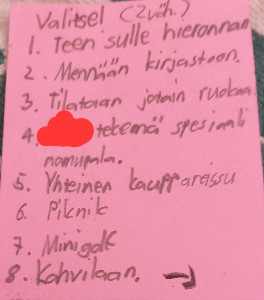 Valitsel (2väh.)
1. Teen sulle hieronnan
2. Mennään kirjastoon.
3. Tilataan jotain ruokaa
4. tekemä spesiaali
namupala.
5. Yhteinen kauppareissu
6. Piknik
7. Minigolf
8. Kahvilaan. →